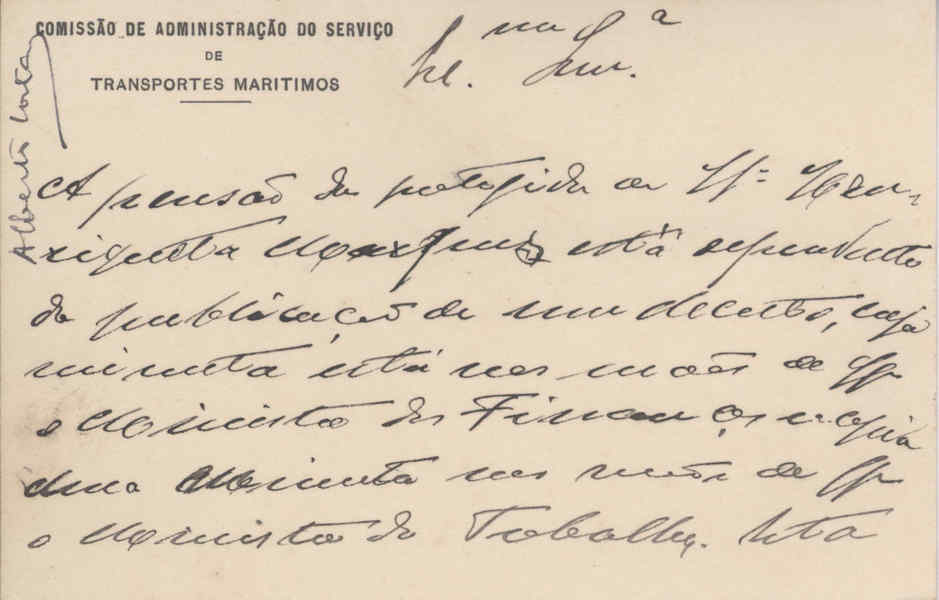 COMISSÃO DE ADMINISTRAÇÃO DO SERVIÇO
DE
TRANSPORTES MARITIMOS
Alberto Costa
A pensão da protegida de Hen-
riqueta Marques está dependente
da publicação de um decreto, cuja
minuta está nas mãos de
o Ministro das Finanças e copia
duma minuta nas mãos de
o Ministro do Trabalho. Esta